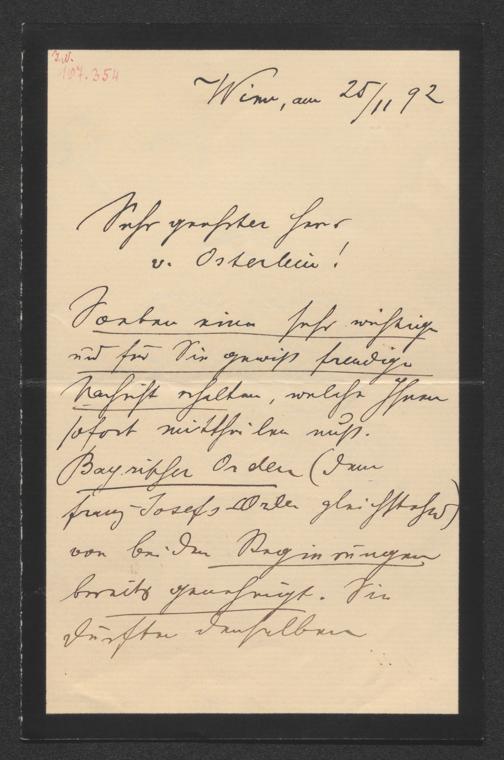 I.N.
107.354
Wien, am 25/11 92
Sehr geehrter Herr
v. Osterlein!
Soeben eine sehr wichtige
und für Sie gewiß freudige
Nachricht erhalten, welche Ihnen
sofort mittheilen muß.
Bayrischer Orden (dem
Franz-Josefs-Orden gleichstehend)
von beiden Regierungen
bereits genehmigt. Sie
dürften denselben